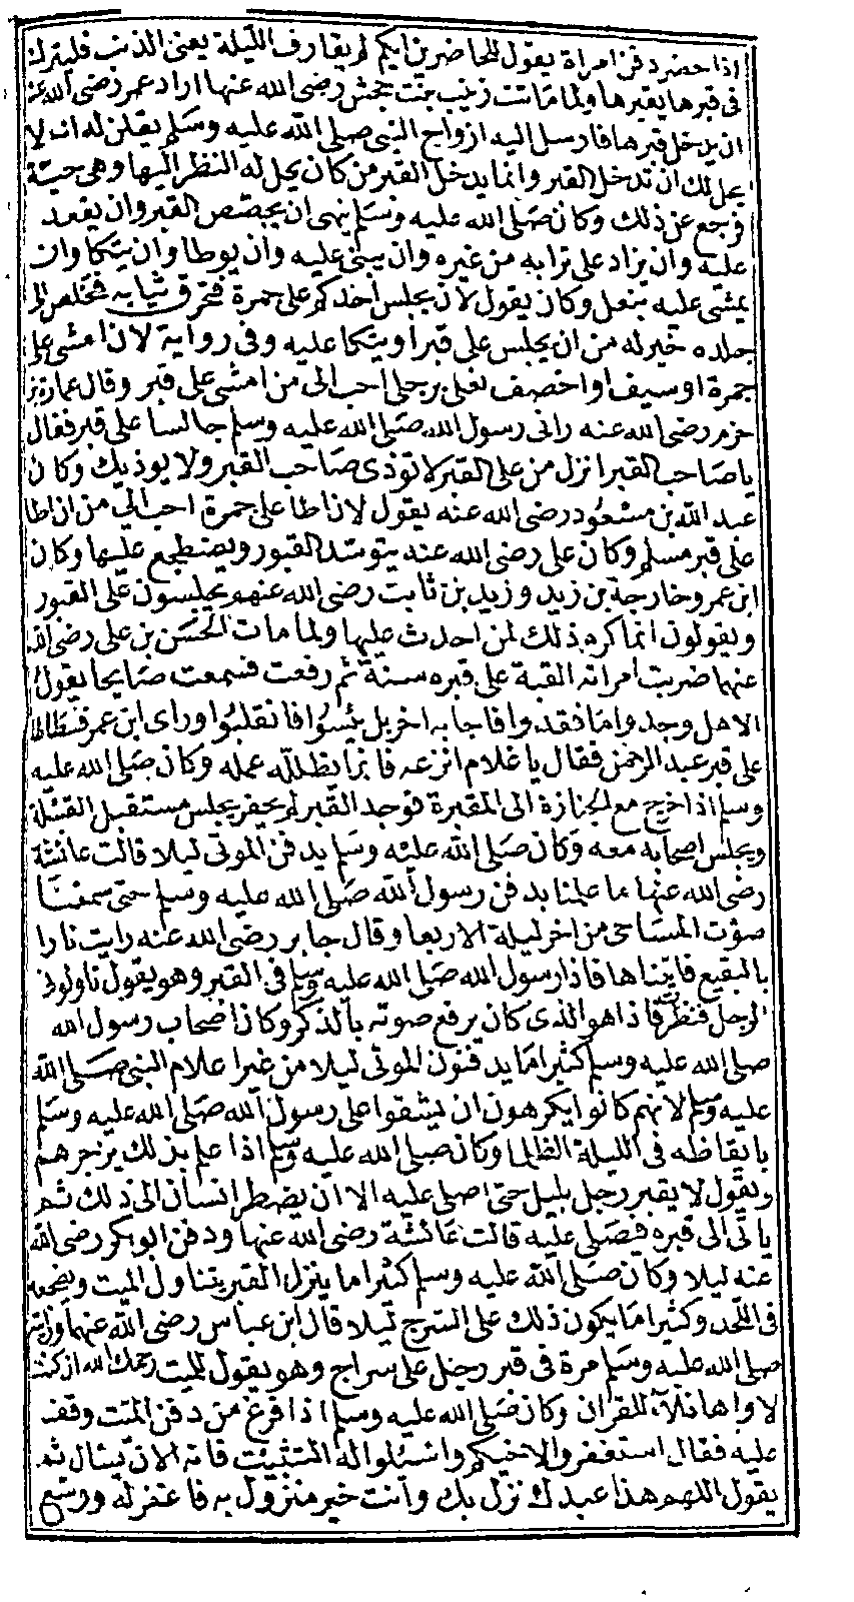 اذا حضر دفن امراة يقول للحاضرين ايكم لم يقارف الليلة يعنى الذنب فلينزل
فى قبرها يقبرها ولما ماتت زينب بنت جحش رضى الله عنها اراد عمر رضى الله عنه
ان يدخل قبرها فارسل اليه ازواج النبى صلى الله عليه وسلم يقلن له انه لا
يحل لك ان تدخل القبر وانما يدخل القبر من كان يحل له النظر اليها وهى حية
فرجع عن ذلك وكان صلى الله عليه وسلم ينهى ان يجصص القبر وان يقعد
عليه وان يزاد على ترابه من غيره وان يبنى عليه وان يوطا وان يتكا وان
يمشى عليه بنعل وكان يقول لان يجلس احدكم على جمرة فتحرق ثيابه فتخلص الى
جلده خير له من ان يجلس على قبر او يتكا عليه وفى رواية لان امشى على
جمرة او سيف او اخصف نعلى برجلى احب الى من امشى على قبر وقال عمارة بن
حزم رضى الله عنه رانى رسول الله صلى الله عليه وسلم جالسا على قبر فقال
يا صاحب القبر انزل من على القبر لا توذى صاحب القبر ولا يوذيك وكان
عبد الله بن مسعود رضى الله عنه يقول لان اطا على جمرة احب الي من ان اطا
على قبر مسلم وكان على رضى الله عنه يتوسد القبور ويضطجع عليها وكان
ابن عمر وخارجة بن زيد وزيد بن ثابت رضى الله عنهم يجلسون على القبور
ويقولون انما كره ذلك لمن احدث عليها ولما مات الحسن بن على رضى الله
عنهما ضربت امراته القبة على قبره سنة ثم رفعت فسمعت صايحا يقول
الا هل وجدوا ما فقدوا فاجابه اخر بل يئسوا فانقلبوا وراى ابن عمر فسطاطا
على قبر عبد الرحمن فقال يا غلام انزعه فانما يظله عمله وكان صلى الله عليه
وسلم اذا خرج مع الجنازة الى المقبرة فوجد القبر لم يحفر يجلس مستقبل القبلة
ويجلس اصحابه معه وكان صلى الله عليه وسلم يدفن الموتى ليلا قالت عائشة
رضى الله عنها ما علمنا بدفن رسول الله صلى الله عليه وسلم حتى سمعنا
صوت المساحى من اخر ليلة الاربعا وقال جابر رضى الله عنه رايت نارا
بالبقيع فاتيناها فاذا رسول الله صلى الله عليه وسلم فى القبر وهو يقول ناولونى
الرجل فنظرت فاذا هو الذى كان يرفع صوته بالذكر وكان اصحاب رسول الله
صلى الله عليه وسلم كثيرا ما يدفنون الموتى ليلا من غير اعلام النبى صلى الله
عليه وسلم لانهم كانوا يكرهون ان يشقوا على رسول الله صلى الله عليه وسلم
بايقاظه فى الليلة الظلما وكان صلى الله عليه وسلم اذا علم بذلك يزجرهم
ويقول لا يقبر رجل بليل حتى اصلى عليه الا ان يضطر انسان الى ذلك ثم
ياتى الى قبره فيصلى عليه قالت عائشة رضى الله عنها ودفن ابو بكر رضى الله
عنه ليلا وكان صلى الله عليه وسلم كثيرا ما ينزل القبر يتناول الميت ويضعه
فى اللحد وكثيرا ما يكون ذلك على السرج ليلا قال ابن عباس رضى الله عنهما ورايته
صلى الله عليه وسلم مرة فى قبر رجل على سراج وهو يقول للميت رحمك الله ان كنت
لاواها تلآء للقران وكان صلى الله عليه وسلم اذا فرغ من دفن الميت وقف
عليه فقال استغفروا لاخيكم واسئلوا له التثبيت فانه الان يسال ثم
يقول اللهم هذا عبدك نزل بك وانت خير منزول به فاغفر له ووسع